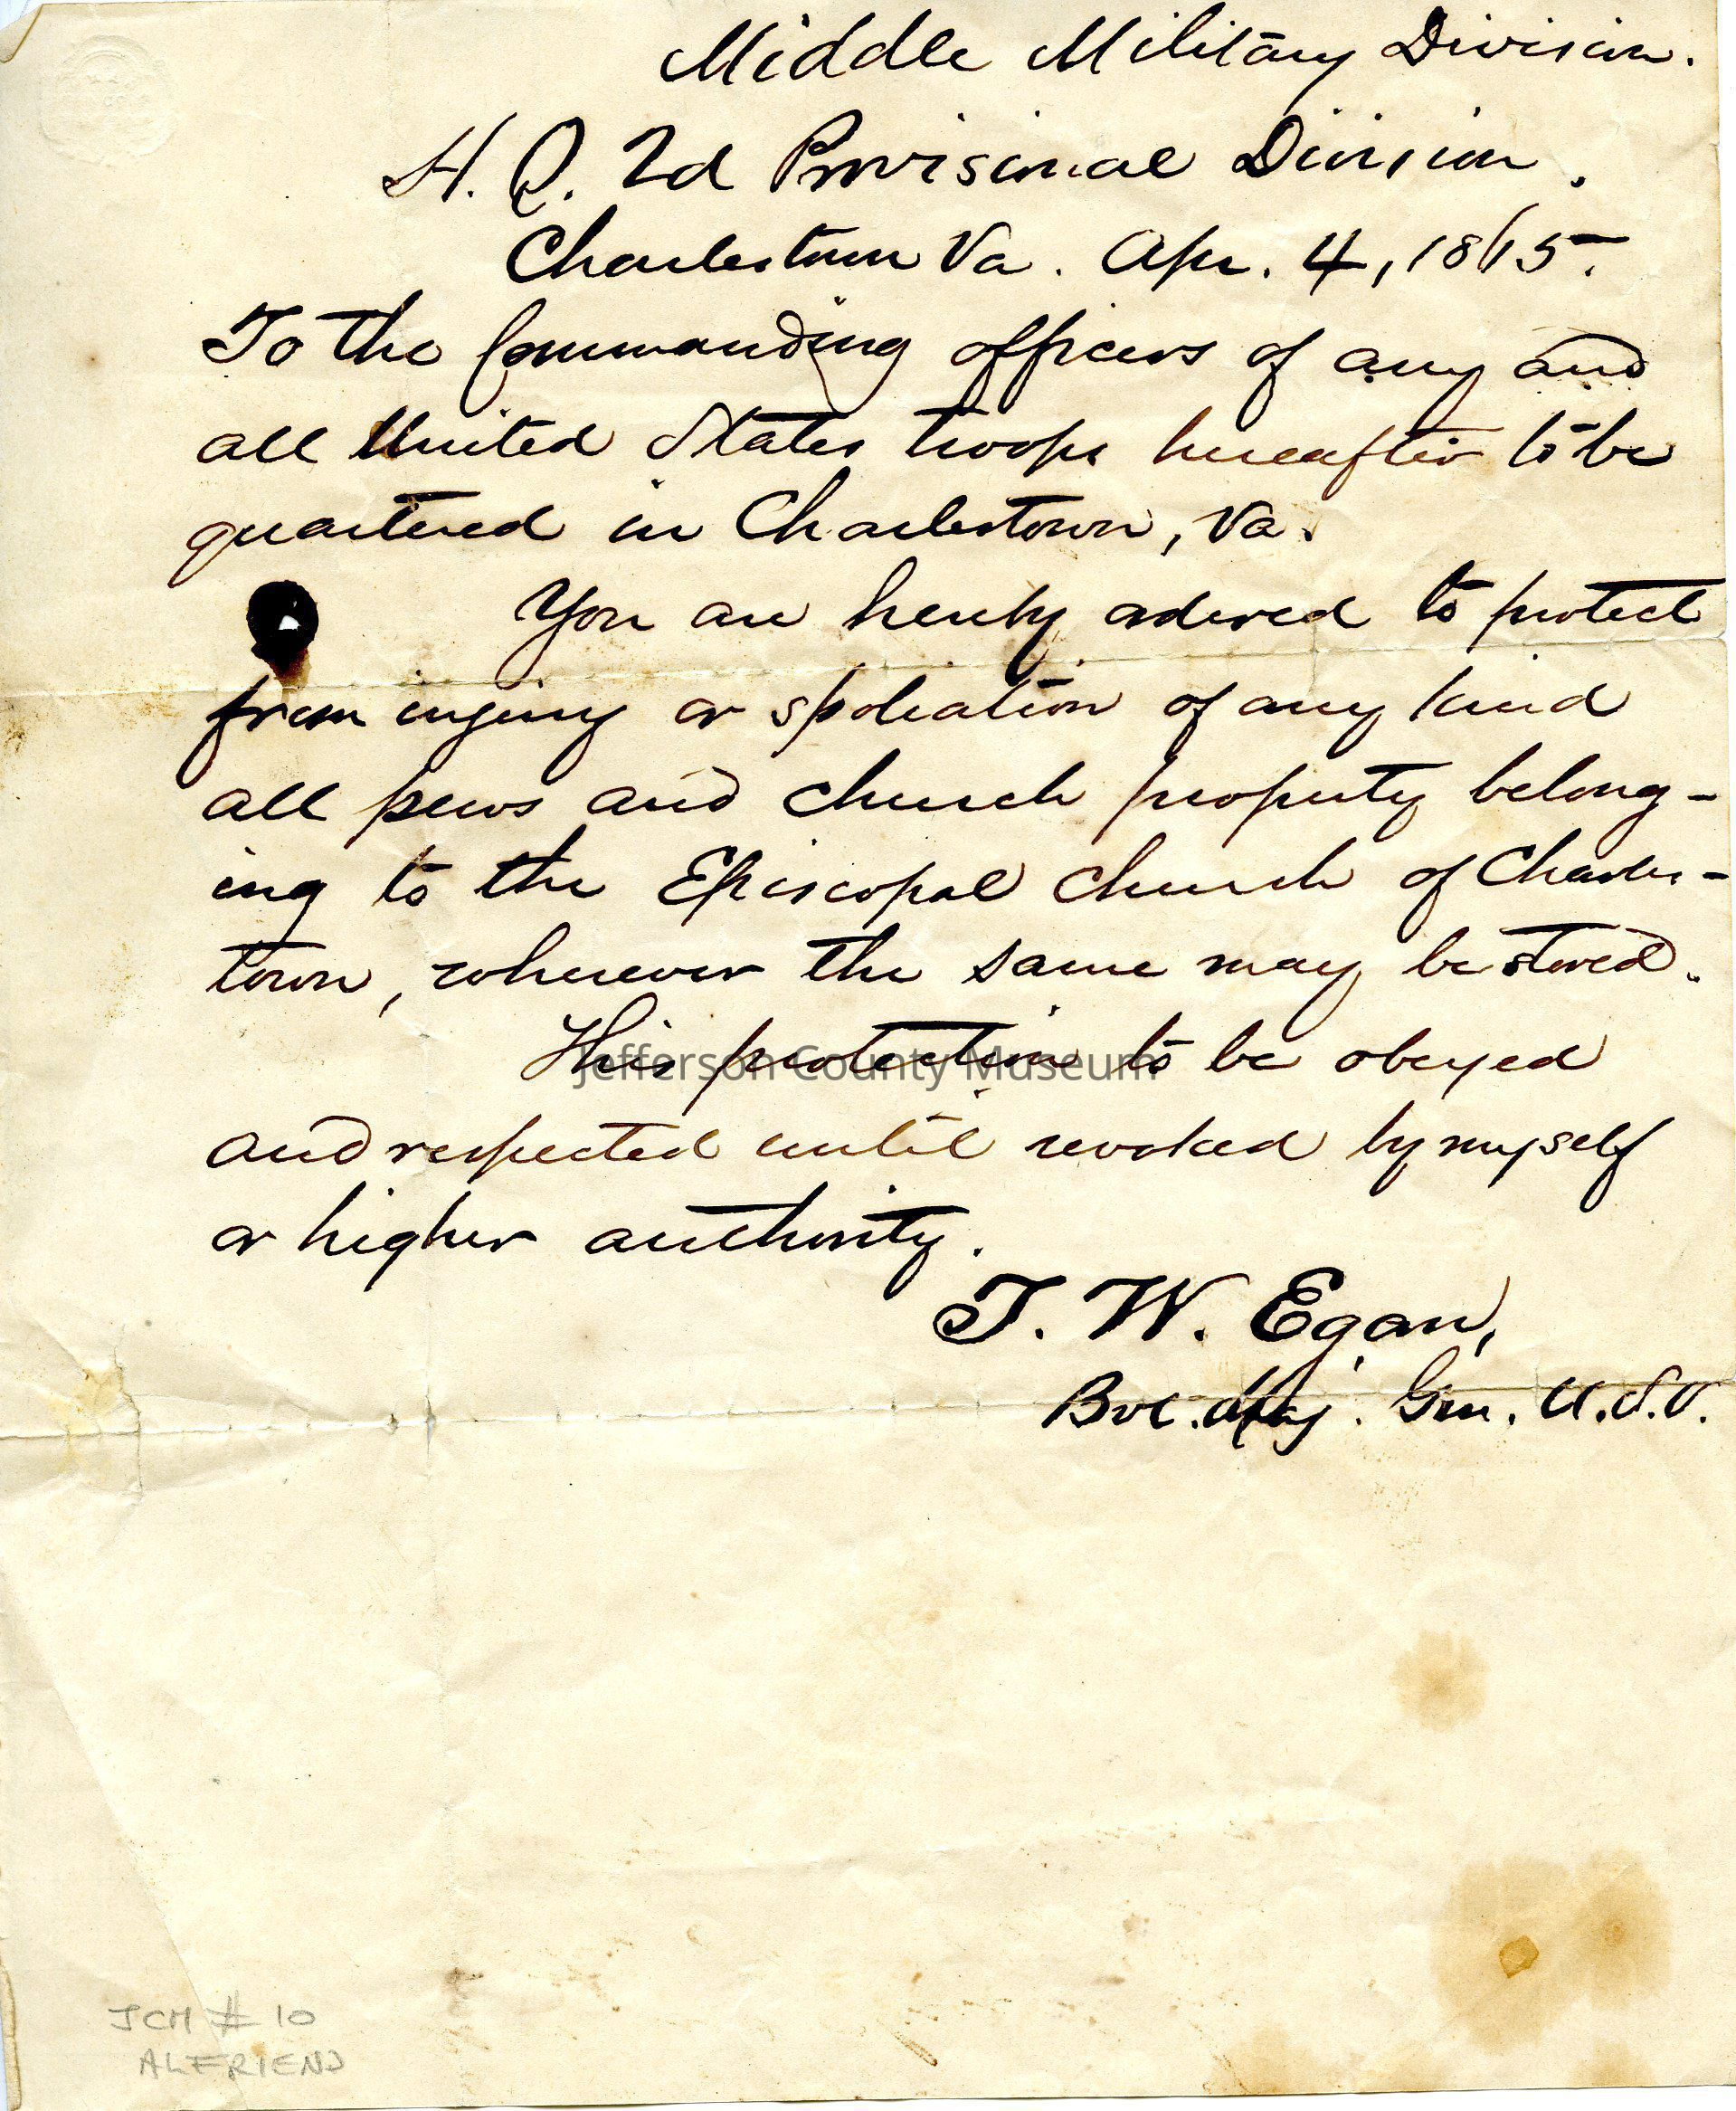 Middle Military Division.
H. Q. 2d Provisional Division.
Charlestown Va. Apr. 4, 1865.
To the Commanding officers of any and
all United States troops hereafter to be
quartered in Charlestown, Va.
You are hereby ordered to protect
from injury or spoliation of any kind
all pews and church property belong-
ing to the Episcopal Church of Charles-
town, wherever the same may be stored.
This protection to be obeyed
Jefferson County Museum
and respected until revoked by myself
or higher authority.
T. W. Egan,
Bvt. Maj. Gen. U.S.V.
JCM # 10
ALFRIEND